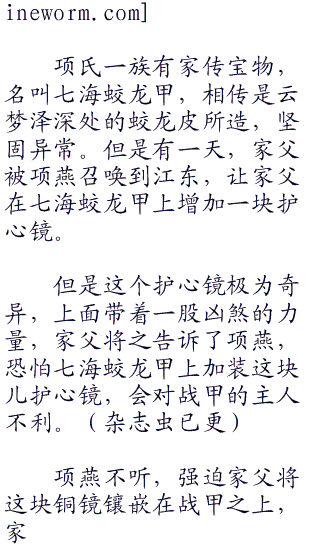 ineworm.com]
项氏一族有家传宝物，
名叫七海蛟龙甲，相传是云
梦泽深处的蛟龙皮所造，坚
固异常。但是有一天，家父
被项燕召唤到江东，让家父
在七海蛟龙甲上增加一块护
心镜。
但是这个护心镜极为奇
异，上面带着一股凶煞的力
量，家父将之告诉了项燕，
恐怕七海蛟龙甲上加装这块
儿护心镜，会对战甲的主人
不利。（杂志虫已更）
项燕不听，强迫家父将
这块铜镜镶嵌在战甲之上，
家